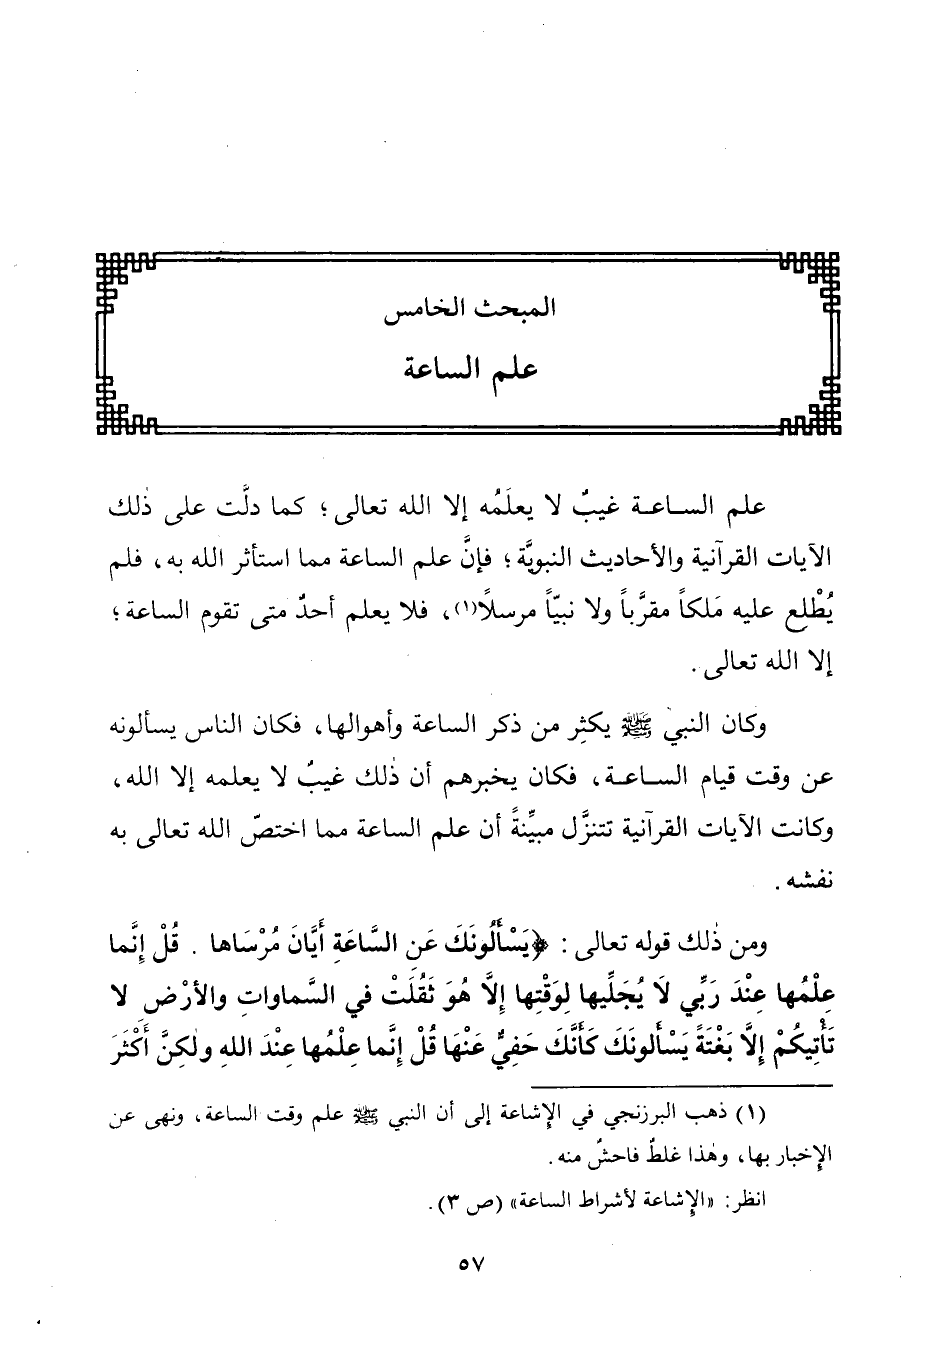 المبحث الخامس
علم الساعة
علم الساعـة غيبٌ لا يعلَمُه إلا الله تعالى؛ كما دلَّت على ذٰلك
الآيات القرآنية والأحاديث النبويَّة؛ فإنَّ علم الساعة مما استأثر الله به، فلم
يُطْلِع عليه مَلكاً مقرَّباً ولا نبيّاً مرسلًا(١)، فلا يعلم أحدٌ متى تقوم الساعة؛
إلا الله تعالى.
وكان النبي ﷺ يكثِر من ذكر الساعة وأهوالها، فكان الناس يسألونه
عن وقت قيام الساعـة، فكان يخبرهم أن ذٰلك غيبٌ لا يعلمه إلا الله،
وكانت الآيات القرآنية تتنزَّل مبيِّنةً أن علم الساعة مما اختصّ الله تعالى به
نفسَه.
ومن ذٰلك قوله تعالى: ﴿يَسْأَلُونَكَ عَنِ السَّاعَةِ أَيَّانَ مُرْسَاها . قُلْ إِنَّما
عِلْمُها عِنْدَ رَبِّي لَا يُجَلِّيها لِوَقْتِها إِلَّا هُوَ ثَقُلَتْ في السَّماواتِ والأرْضِ لا
تَأْتِيكُمْ إِلَّا بَغْتَةً يَسْأَلونَكَ كَأَنَّكَ حَفِيٌّ عَنْهَا قُلْ إِنَّما عِلْمُها عِنْدَ اللهِ ولٰكِنَّ أَكْثَرَ
(١) ذهب البرزنجي في الإشاعة إلى أن النبي ﷺ علم وقت الساعة، ونهى عن
الإخبار بها، وهٰذا غلطٌ فاحشٌ منه.
انظر: «الإشاعة لأشراط الساعة» (ص ٣).
٥٧